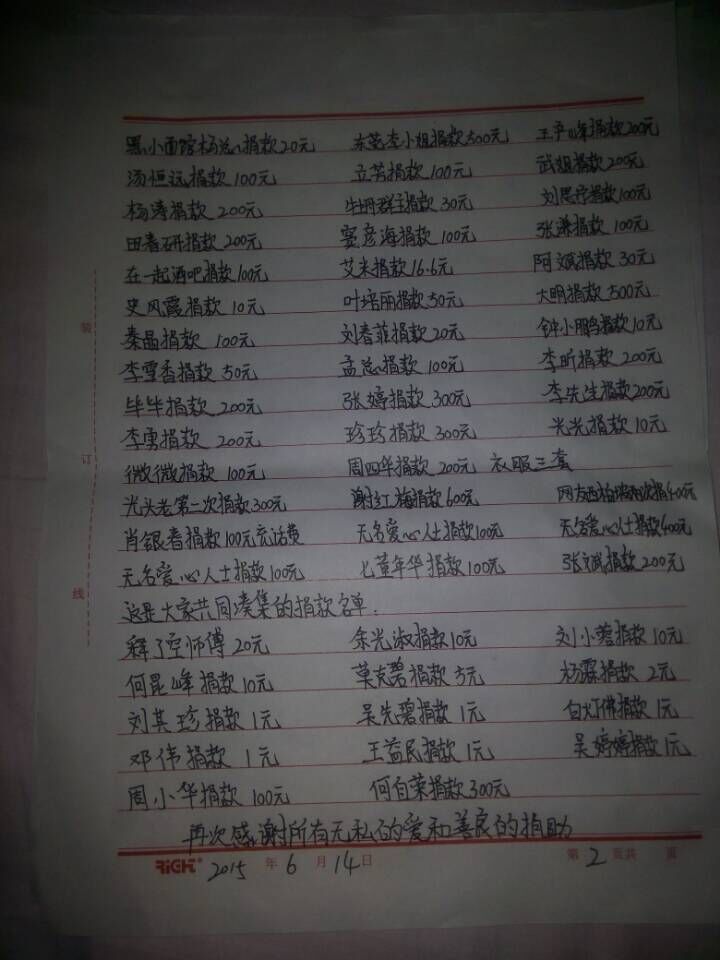 黑小面馆杨总捐款20元 东莞李小姐捐款500元 王尹峰捐款200元
汤恒远捐款100元 立芳捐款100元 武姐捐款200元
杨涛捐款200元 牡丹群主捐款30元 刘思序捐款100元
田春研捐款200元 窦彦海捐款100元 张谦捐款100元
在一起酒吧捐款100元 艾米捐款16.6元 阿斌捐款30元
史风霞捐款10元 叶培丽捐款50元 大明捐款500元
秦晶捐款100元 刘春菲捐款20元 钟小鹏捐款10元
李雪香捐款50元 孟总捐款100元 李昕捐款200元
毕毕捐款200元 张婷捐款300元 李先生捐款200元
李勇捐款200元 珍珍捐款300元 光光捐款10元
微微捐款100元 周四华捐款200元 衣服三套
光头老第二次捐款300元 谢红梅捐款600元 网友西柏 捐400元
肖银春捐款100元充话费 无名爱心人士捐100元 无名爱心人士捐款400元
无名爱心人士捐100元 七堇年华捐款100元 张斌捐款200元
这是大家共同凑集的捐款名单.
释了空师傅20元 余光淑捐款10元 刘小蓉捐款10元
何昆峰捐款10元 莫克碧捐款5元 杨霖捐款2元
刘其珍捐款1元 吴先碧捐款1元 白灯佛捐款1元
邓伟捐款1元 王益民捐款1元 吴婷婷捐款1元
周小华捐款100元 何自荣捐款300元
再次感谢所有无私的爱和善良的捐助
装
订
线
RiGHT 2015年6月14日 第2页共 页